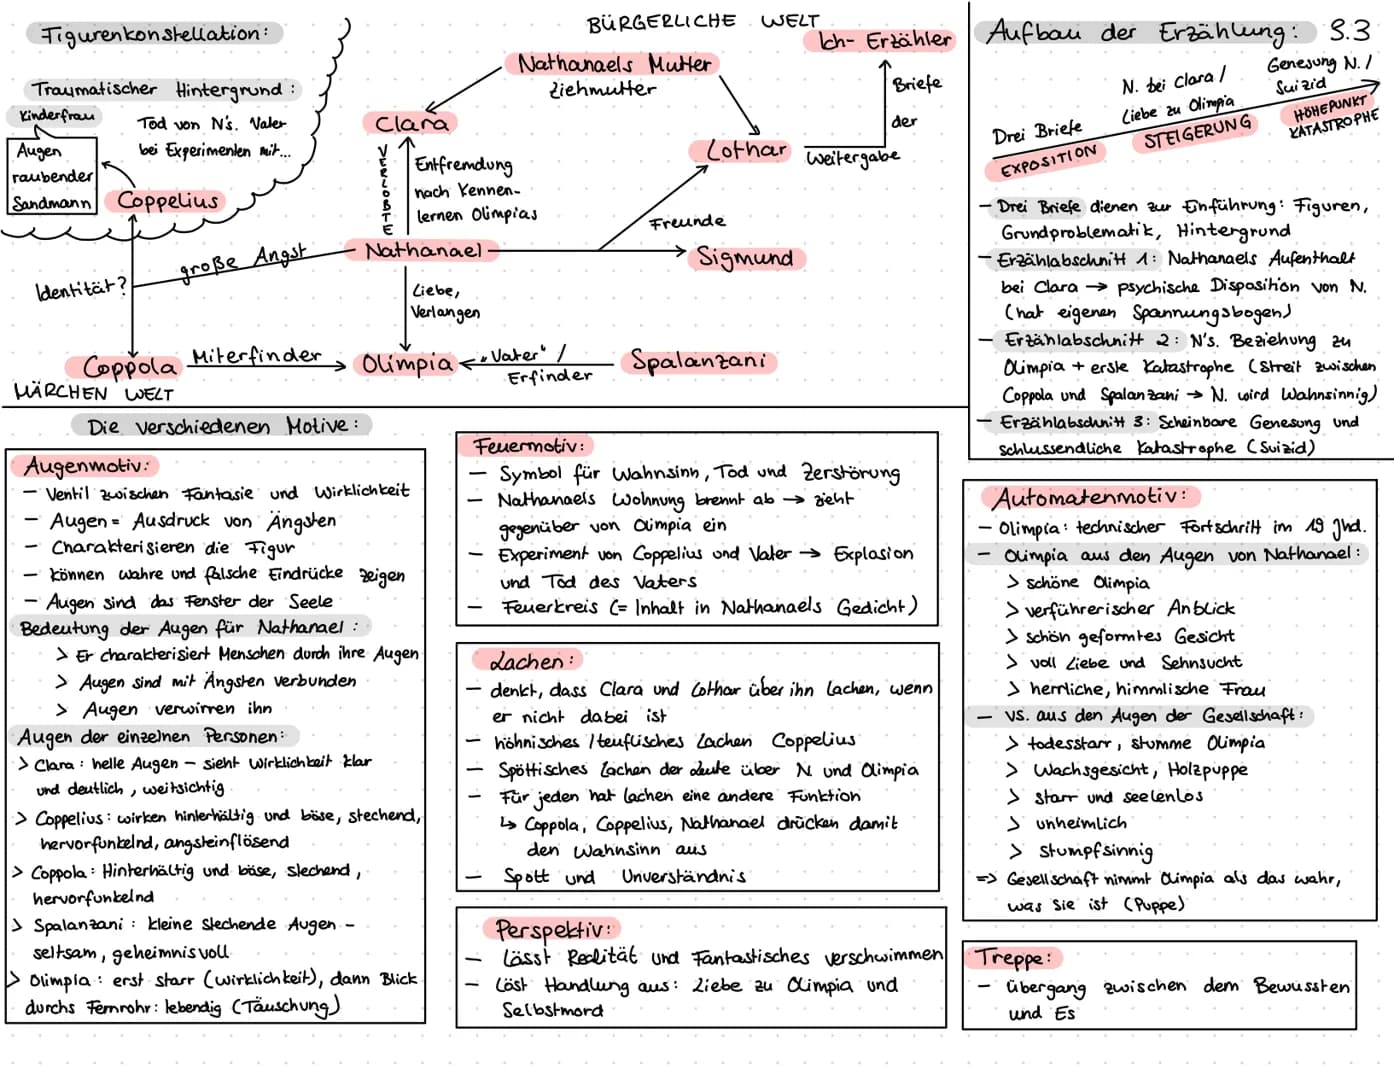 Figurenkonstellation:
Traumatischer Hintergrund:
Kinderfrau
Augen
raubender
Sandmann
Tod von N's. Vater
bei Experimenten mit...
Coppelius
BÜRGERLICHE WELT
Ich-Erzähler
Nathanaels Mutter
Ziehmutter
Briefe
der
Weitergabe
Clara
Lothar
VERLOBTE
Entfremdung
nach Kennen-
lernen Olimpias
Freunde
Nathanael
Sigmund
große Angst
Identität?
Liebe,
Verlangen
Coppola
Miterfinder
Olimpia
„Vater" /
Erfinder
Spalanzani
MÄRCHEN WELT
Aufbau der Erzählung: S.3
Drei Briefe
EXPOSITION
N. bei Clara /
Liebe zu Olimpia
STEIGERUNG
Genesung N. /
Suizid
HÖHEPUNKT
KATASTROPHE
- Drei Briefe dienen zur Einführung: Figuren,
Grundproblematik, Hintergrund
- Erzählabschnitt 1: Nathanaels Aufenthalt
bei Clara → psychische Disposition von N.
(hat eigenen Spannungsbogen)
- Erzählabschnitt 2: N's. Beziehung zu
Olimpia + erste Katastrophe (Streit zwischen
Coppola und Spalanzani → N. wird Wahnsinnig)
- Erzählabschnitt 3: Scheinbare Genesung und
schlussendliche Katastrophe (Suizid)
Die verschiedenen Motive:
Augenmotiv:
- Ventil zwischen Fantasie und Wirklichkeit
- Augen = Ausdruck von Ängsten
- Charakterisieren die Figur
- können wahre und falsche Eindrücke zeigen
- Augen sind das Fenster der Seele
Bedeutung der Augen für Nathanael:
> Er charakterisiert Menschen durch ihre Augen
> Augen sind mit Ängsten verbunden
> Augen verwirren ihn
Augen der einzelnen Personen:
> Clara: helle Augen - sieht Wirklichkeit klar
und deutlich, weitsichtig
> Coppelius: wirken hinterhältig und böse, stechend,
hervorfunkelnd, angsteinflösend
> Coppola: Hinterhältig und böse, stechend,
hervorfunkelnd
> Spalanzani: kleine stechende Augen -
seltsam, geheimnisvoll
> Olimpia: erst starr (wirklichkeit), dann Blick
durchs Fernrohr: lebendig (Täuschung)
Feuermotiv:
- Symbol für Wahnsinn, Tod und Zerstörung
- Nathanaels Wohnung brennt ab → zieht
gegenüber von Olimpia ein
- Experiment von Coppelius und Vater → Explosion
und Tod des Vaters
- Feuerkreis (= Inhalt in Nathanaels Gedicht)
Lachen:
- denkt, dass Clara und Lothar über ihn Lachen, wenn
er nicht dabei ist
- höhnisches / teuflisches Lachen Coppelius
- Spöttisches Lachen der Leute über N. und Olimpia
- Für jeden hat lachen eine andere Funktion
↳ Coppola, Coppelius, Nathanael drücken damit
den Wahnsinn aus
- Spott und Unverständnis
Perspektiv:
- Lässt Realität und Fantastisches verschwimmen
- Löst Handlung aus: Liebe zu Olimpia und
Selbstmord
Automatenmotiv:
- Olimpia: technischer Fortschritt im 19 Jhd.
- Olimpia aus den Augen von Nathanael:
> schöne Olimpia
> verführerischer Anblick
> schön geformtes Gesicht
> voll Liebe und Sehnsucht
> herrliche, himmlische Frau
- vs. aus den Augen der Gesellschaft:
> todesstarr, stumme Olimpia
> Wachsgesicht, Holzpuppe
> starr und seelenlos
> unheimlich
> stumpfsinnig
=> Gesellschaft nimmt Olimpia als das wahr,
was sie ist (Puppe)
Treppe:
- übergang zwischen dem Bewussten
und Es